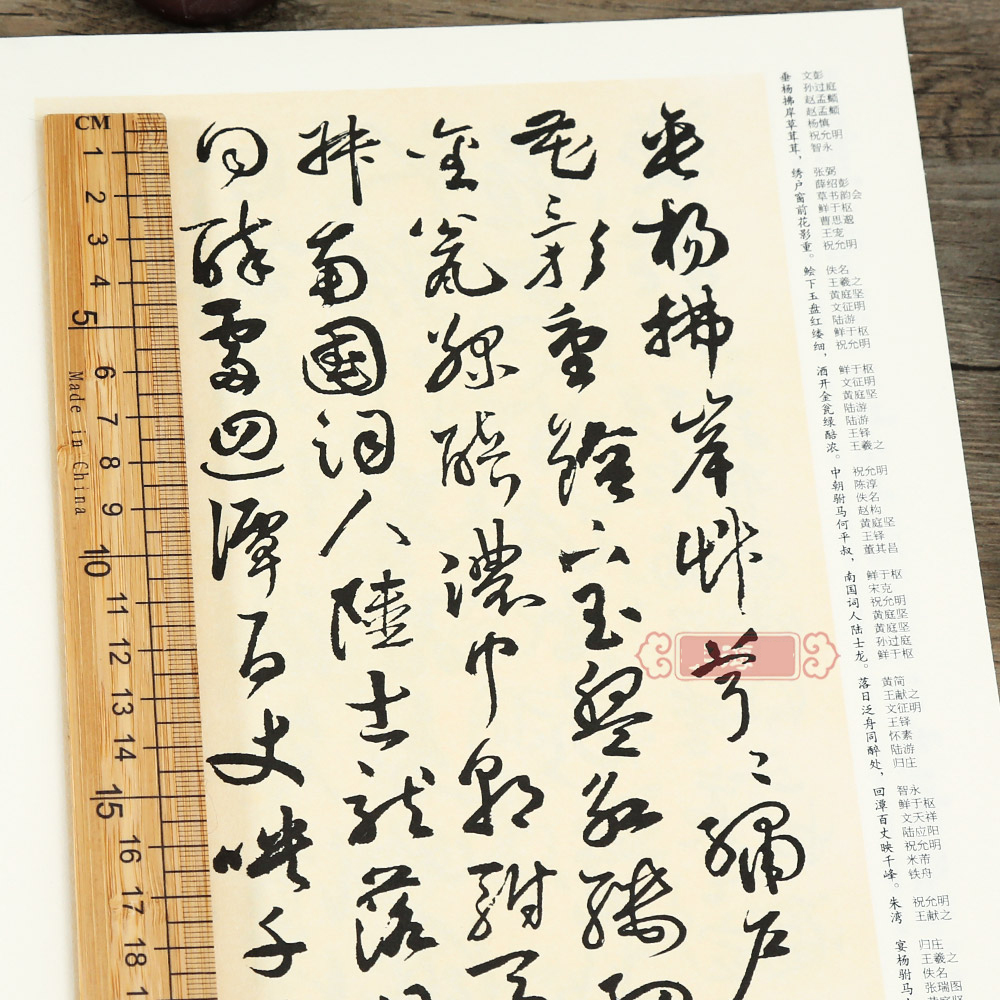 垂楊拂岸艸茸〻繡户
花影重鱠下玉盤紅縷細
金瓮綠醅濃中朝駙馬
叔南國詞人陸士龍落日
同醉處迴潭百丈映千
垂 文彭
杨 孙过庭
拂 赵孟頫
岸 赵孟頫
草 杨慎
茸 祝允明
茸， 智永
绣 张弼
户 薛绍彭
窗 草书韵会
前 鲜于枢
花
影 王宠
重。 祝允明
鲙 佚名
下 王羲之
玉 黄庭坚
盘 文征明
红 陆游
缕 鲜于枢
细， 祝允明
酒 鲜于枢
开 文征明
金 黄庭坚
瓮 陆游
绿 陆游
醅 王铎
浓。 王羲之
中 祝允明
朝 陈淳
驸 佚名
马 赵构
何 黄庭坚
平 王铎
叔， 董其昌
南 鲜于枢
国 宋克
词 祝允明
人 黄庭坚
陆 黄庭坚
士 孙过庭
龙。 鲜于枢
落 黄简
日 王献之
泛 文征明
舟 王铎
同 怀素
醉 陆游
处， 归庄
回 智永
潭 鲜于枢
百 文天祥
丈 陆应阳
映 祝允明
千 米芾
峰。 铁舟
朱 祝允明
湾 王献之
宴 归庄
杨 王羲之
驸 佚名
马 张瑞图
CM
1
2
3
4
5
6
7
8
9
10
11
12
13
14
15
16
17
18
Made in China